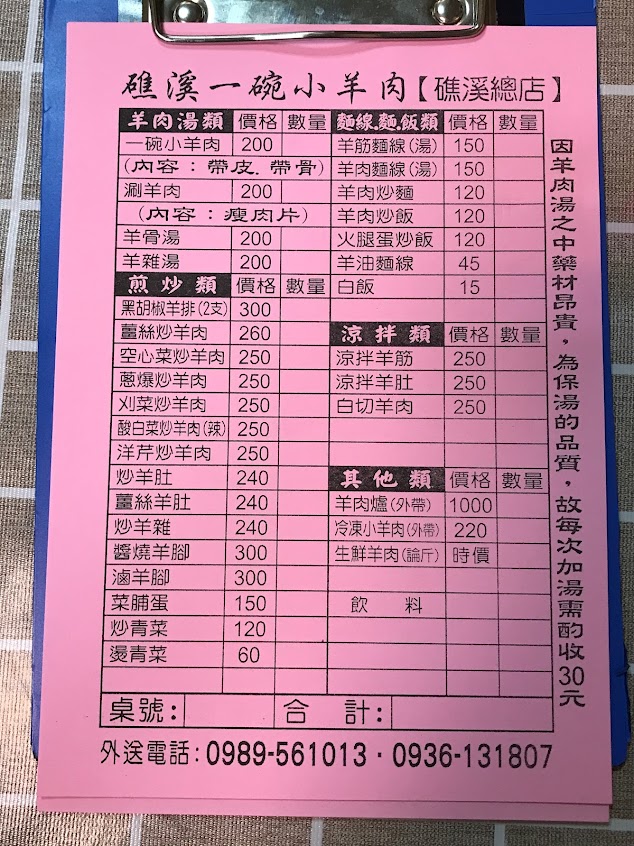 礁溪一碗小羊肉【礁溪總店】
羊肉湯類 價格 數量
一碗小羊肉 200
(內容：帶皮.帶骨)
涮羊肉 200
(內容：瘦肉片)
羊骨湯 200
羊雜湯 200
煎炒類 價格 數量
黑胡椒羊排(2支) 300
薑絲炒羊肉 260
空心菜炒羊肉 250
蔥爆炒羊肉 250
刈菜炒羊肉 250
酸白菜炒羊肉(辣) 250
洋芹炒羊肉 250
炒羊肚 240
薑絲羊肚 240
炒羊雜 240
醬燒羊腳 300
滷羊腳 300
菜脯蛋 150
炒青菜 120
燙青菜 60
麵線.麵.飯類 價格 數量
羊筋麵線(湯) 150
羊肉麵線(湯) 150
羊肉炒麵 120
羊肉炒飯 120
火腿蛋炒飯 120
羊油麵線 45
白飯 15
涼拌類 價格 數量
涼拌羊筋 250
涼拌羊肚 250
白切羊肉 250
其他類 價格 數量
羊肉爐(外帶) 1000
冷凍小羊肉(外帶) 220
生鮮羊肉(論斤) 時價
飲 料
因羊肉湯之中藥材昂貴，為保湯的品質，故每次加湯需酌收30元
桌號: 合 計:
外送電話:0989-561013·0936-131807